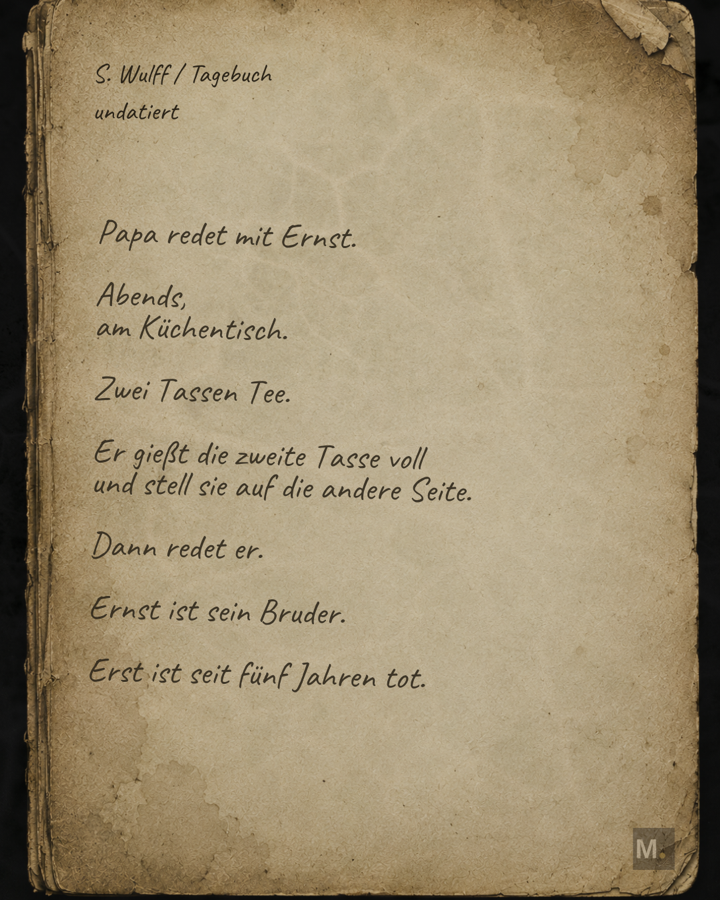 S. Wulff / Tagebuch
undatiert
Papa redet mit Ernst.
Abends,
am Küchentisch.
Zwei Tassen Tee.
Er gießt die zweite Tasse voll
und stell sie auf die andere Seite.
Dann redet er.
Ernst ist sein Bruder.
Erst ist seit fünf Jahren tot.
M.